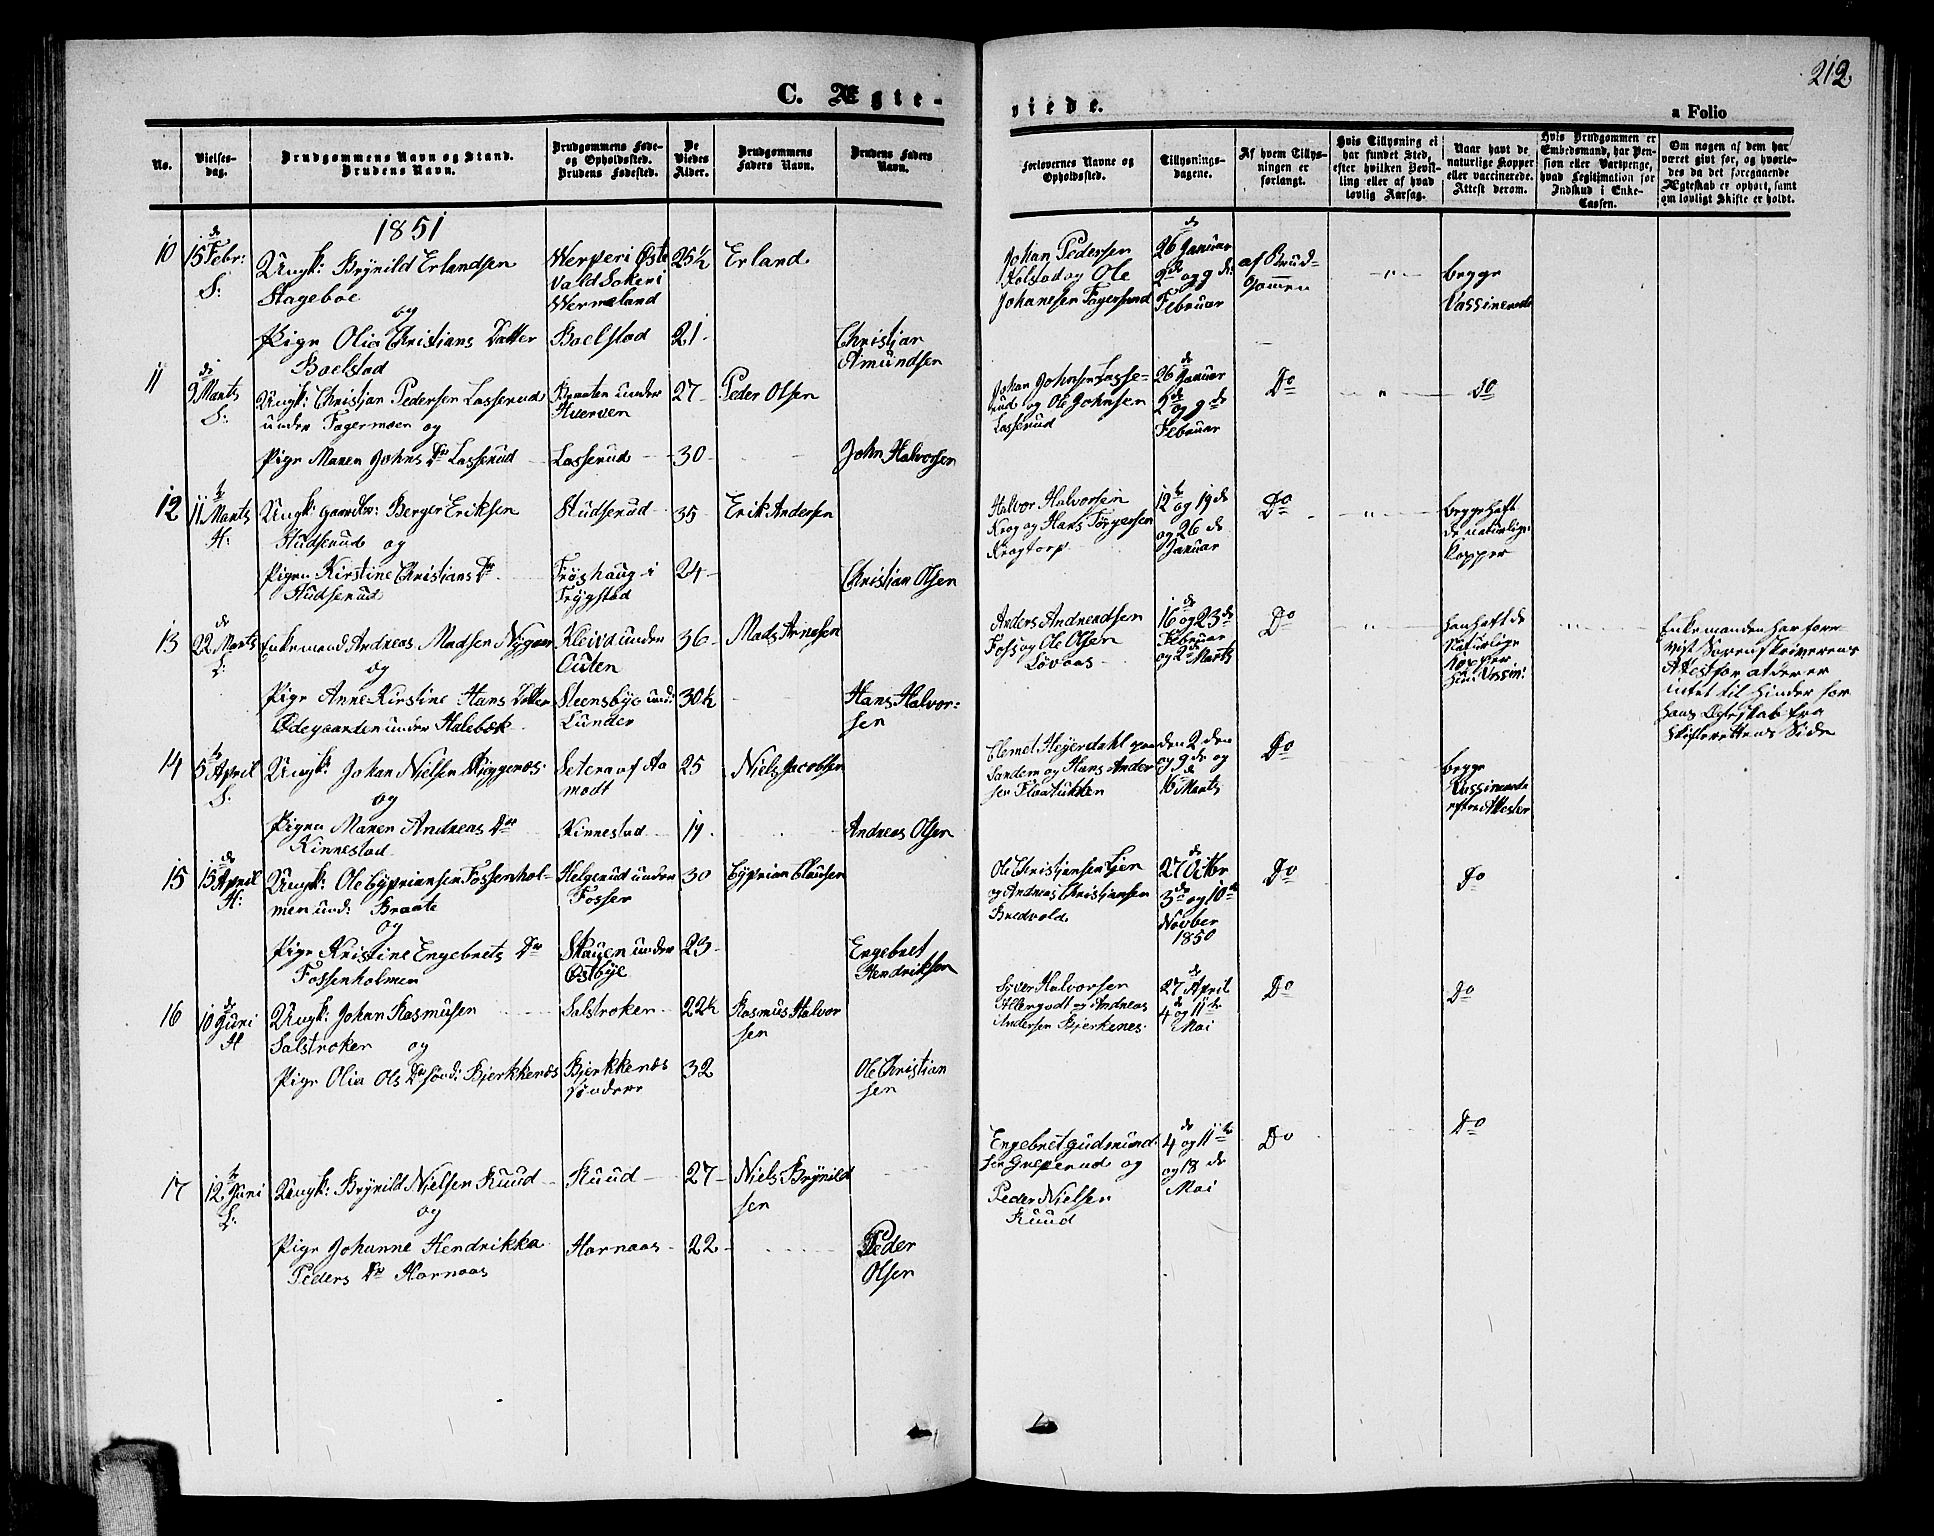 212
C. Ægte-
viede.
a Folio
No.
Vielses-
dag.
Brudgommens Navn og Stand.
Brudens Navn.
Brudgommens Føde-
og Opholdssted.
Brudens Fødested.
De
Viedes
Alder.
Brudgommens
Faders Navn.
Brudens Faders
Navn.
Forlovernes Navne og
Opholdssted.
Tillysnings-
dagene.
Af hvem Tillys-
ningen er
forlangt.
Hvis Tillysning ei
har fundet Sted,
efter hvilken Bevil-
ling eller af hvad
lovlig Aarsag.
Naar havt de
naturlige Kopper
eller vaccinerede.
Attest derom.
Hvis Brudgommen er
Embedsmand, har Pen-
sion eller Vartpenge,
hvad Legitimation for
Indskud i Enke-
Cassen.
Om nogen af dem har
været gift før, og hvorle-
des da det foregaaende
Ægteskab er ophørt, samt
om lovligt Skifte er holdt.
1851
10
15 de Febr:
S:
Ungk: Brynild Erlandsen
Stageboe
og
Pige Olia Christians Datter
Boelstad
Werperi Øste
vald Sokeni
Wermeland
Boelstad
25½
21.
Erland
Christian
Amundsen
Johan Pedersen
Kolstad og Ole
Johanesen Fagersand
26 de Januar
2 de og 9 de
Februar
af Brud-
gomen
begge
Vassinerede
11
9 de Marts
S:
Ungk: Christian Pedersen Lasserud
under Fagermoen og
Pige Maren Johns Dr Lasserud
Kverven
Lasserud
27
30
Peder Olsen
John Halvorsen
Johan Johnsen Lasse-
rud og Ole Johnsen
Lasserud
26 de Januar
2 de og 9 de
Februar
Do
Do
12
11 te Marts
H:
Ungk: gaardbr: Berger Eriksen
Studserud og
Pigen Kirstine Christians Dr
Studserud
Studserud
Frøshaug i
Trygstad
35
24
Erik Andersen
Christian Olsen
Halvor Halvorsen
Krog og Hans Torgersen
Krogtorp
12 te og 19 de
og 26 de
Januar
Do
begge haft
de naturlige
Kopper
13
22 de Marts
L:
Enkemand Andreas Madsen Nygaar
og
Pige Anne Kirstine Hans Datter
Ødegaarden under Halebæk
Kleiva under
Outen
Steensbye und:
Lunder
36
30½
Mads Arnesen
Hans Halvor-
sen
Anders Andreadsen
Foss og Ole Olsen
Løvaas
16 de og 23 de
Februar
og 2 de Marts
Do
han haft de
Naturlige
Kopper
hun Vassin:
Enkemanden har fore-
vist Sorenskriverens
Attest for at der er
intet til Hinder for
hans Ægteskab fra
Skifterettens Side
14
5 te April
S:
Ungk: Johan Nielsen Skyggenæs
og
Pigen Maren Andreas Dr
Kinnestad
Seteraf Aa
modt
Kinnestad
25
19.
Niels Jacobsen
Andreas Olsen
Clemet Heyerdahl paa
Sandem og Hans Ander
sen Flaatukken
den 2 den
og 9 de og
16 de Marts
Do
begge
Vassinerede
efter Attester
15
15 de April
H:
Ungk: Ole Cypriansen Fossenhol-
men und: Braate
og
Pige Kristine Engebrets Dr
Fossenholmen
Helgerud under
Fosser
Skougen under
Østbye
30
23
Cyprian Clausen
Engebret
Hendriksen
Ole Christiansen Lien
og Andreas Christiansen
Bredvold
27 de Octbr
3 de og 10 de
Novber
1850
Do
Do
16
10 de Juni
H
Ungk: Johan Rasmusen
Salstroken og
Pige Olia Ols Dr sønd: Bjerkkenæs
Salstroken
Bjerkkenæs
Søndree
22½
32
Rasmus Halvor
sen
Ole Christian
sen
Syver Halvorsen
Allergodt og Andreas
Andersen Bjerkenes
27 de April
4 de og 11 te
Mai
Do
Do
17
12 te Juni
L:
Ungk: Brynild Nielsen Ruud
og
Pige Johanne Hendrikka
Peders Dr Hornaas
Ruud
Hornaas
27
22
Niels Brynild
sen
Peder
Olsen
Engebret Gudmund-
sen Gneperud og
Peder Nielsen
Ruud
4 de og 11 te
og 18 de
Mai
Do
Do